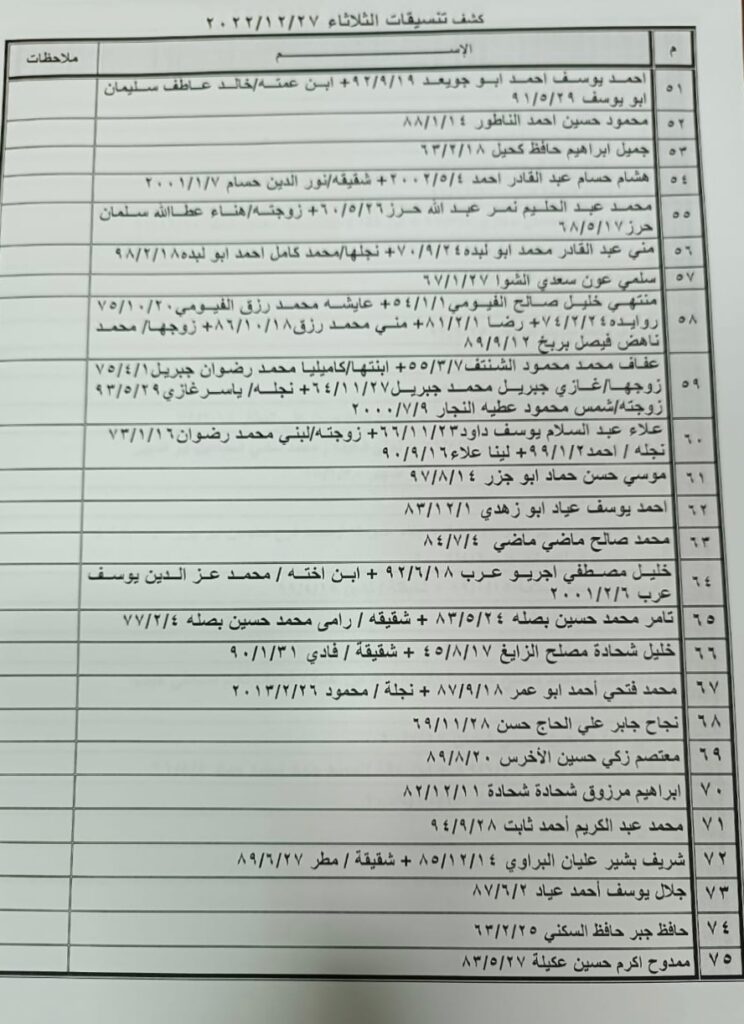 كشف تنسيقات الثلاثاء ٢٠٢٢/١٢/٢٧
م الإســـــــم ملاحظات
٥١ احمد يوسف احمد ابو جويعد ٩٢/٩/١٩+ ابن عمته/خالد عاطف سليمان
ابو يوسف ٩١/٥/٢٩
٥٢ محمود حسين احمد الناطور ٨٨/١/١٤
٥٣ جميل ابراهيم حافظ كحيل ٦٣/٢/١٨
٥٤ هشام حسام عبد القادر احمد ٢٠٠٢/٥/٤+ شقيقه/نور الدين حسام ٢٠٠١/١/٧
٥٥ محمد عبد الحليم نمر عبد الله حرز٦٠/٥/٢٦+ زوجته/هناء عطاالله سلمان
حرز٦٨/٥/١٧
٥٦ مني عبد القادر محمد ابو لبده٧٠/٩/٢٤+ نجلها/محمد كامل احمد ابو لبده٩٨/٢/١٨
٥٧ سلمي عون سعدي الشوا ٦٧/١/٢٧
٥٨ منتهي خليل صالح الفيومي٥٤/١/١+ عايشه محمد رزق الفيومي٧٥/١٠/٢٠
روايده٧٤/٢/٢٤+ رضا ٨١/٢/١+ مني محمد رزق٨٦/١٠/١٨+ زوجها/ محمد
ناهض فيصل بربخ ٨٩/٩/١٢
٥٩ عفاف محمد محمود الشنتف٥٥/٣/٧+ ابنتها/كاميليا محمد رضوان جبريل٧٥/٤/١
زوجها/غازي جبريل محمد جبريل٦٤/١١/٢٧+ نجله/ ياسرغازي٩٣/٥/٢٩
زوجته/شمس محمود عطيه النجار ٢٠٠٠/٧/٩
٦٠ علاء عبد السلام يوسف داود٦٦/١١/٢٣+ زوجته/لبني محمد رضوان٧٣/١/١٦
نجله / احمد٩٩/١/٢+ لينا علاء٩٠/٩/١٦
٦١ موسي حسن حماد ابو جزر ٩٧/٨/١٤
٦٢ احمد يوسف عياد ابو زهدي ٨٣/١٢/١
٦٣ محمد صالح ماضي ماضي ٨٤/٧/٤
٦٤ خليل مصطفي اجريو عرب ٩٢/٦/١٨ + ابن اخته / محمد عز الدين يوسف
عرب ٢٠٠١/٢/٦
٦٥ تامر محمد حسين بصله ٨٣/٥/٢٤ + شقيقه / رامى محمد حسين بصله ٧٧/٢/٤
٦٦ خليل شحادة مصلح الزايغ ٤٥/٨/١٧ + شقيقة / فادي ٩٠/١/٣١
٦٧ محمد فتحي أحمد ابو عمر ٨٧/٩/١٨ + نجلة / محمود ٢٠١٣/٢/٢٦
٦٨ نجاح جابر علي الحاج حسن ٦٩/١١/٢٨
٦٩ معتصم زكي حسين الأخرس ٨٩/٨/٢٠
٧٠ ابراهيم مرزوق شحادة شحادة ٨٢/١٢/١١
٧١ محمد عبد الكريم أحمد ثابت ٩٤/٩/٢٨
٧٢ شريف بشير عليان البراوي ٨٥/١٢/١٤ + شقيقة / مطر ٨٩/٦/٢٧
٧٣ جلال يوسف أحمد عياد ٨٧/٦/٢
٧٤ حافظ جبر حافظ السكني ٦٣/٢/٢٥
٧٥ ممدوح اكرم حسين عكيلة ٨٣/٥/٢٧